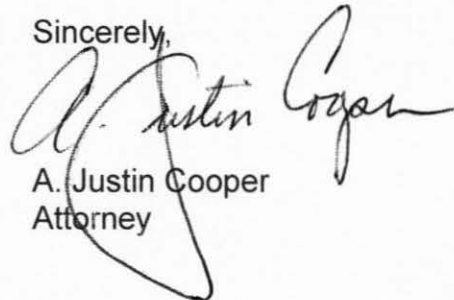 Sincerely,
A. Justin Cooper
A. Justin Cooper
Attorney